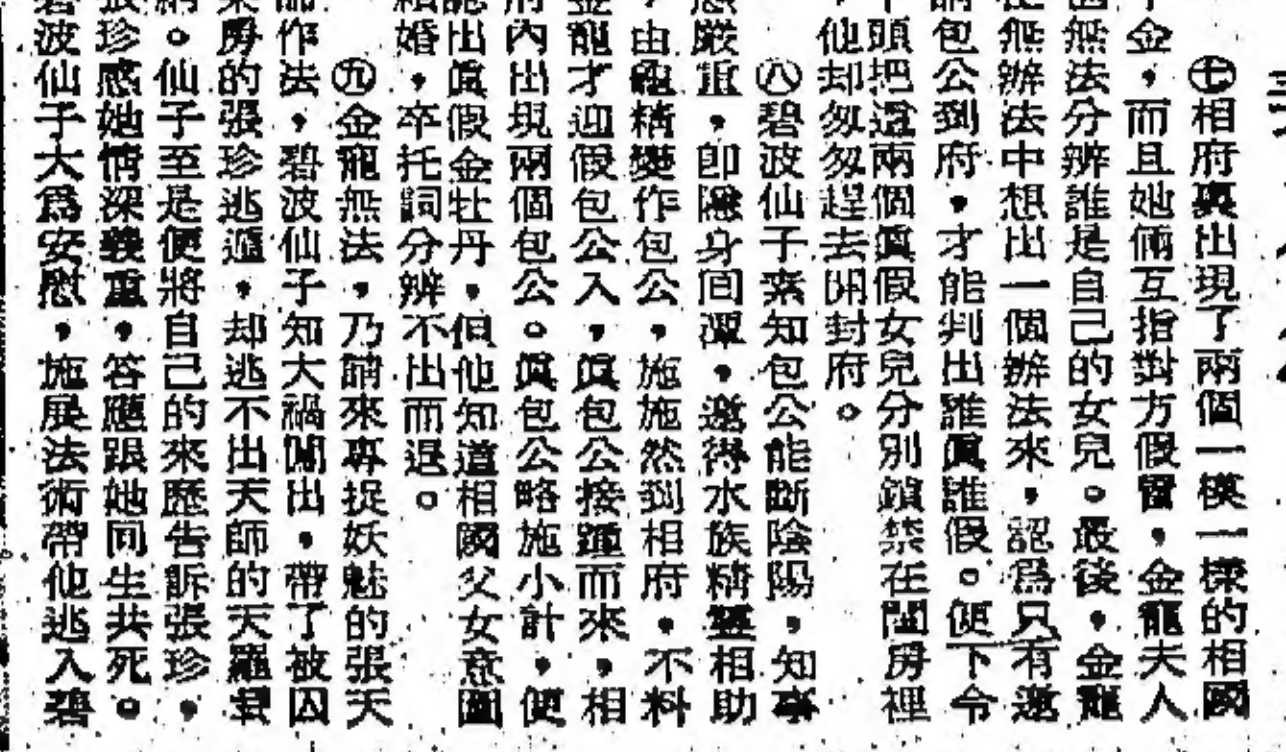 ㊆相府裏出現了兩個一模一樣的相國
千金，而且她倆互指對方假冒，金龍夫人
也無法分辨誰是自己的女兒。最後，金龍
從無辦法中想出一個辦法來，認爲只有邀
請包公到府，才能判出誰眞誰假。便下令
丫頭把這兩個眞假女兒分別鎖禁在閨房裡
，他却匆匆趕去開封府。
㊇碧波仙子素知包公能斷陰陽，知事
態嚴重，卽隱身回潭，邀得水族精靈相助
，由龜精變作包公，施施然到相府，不料
金龍才迎假包公入，眞包公接踵而來，相
府內出現兩個包公。眞包公略施小計，便
認出眞假金牡丹，但他知道相國父女意圖
賴婚，卒托詞分辨不出而退。
㊈金寵無法，乃請來專捉妖魅的張天
師作法，碧波仙子知大禍闖出，帶了被囚
柴房的張珍逃遁，却逃不出天師的天羅
網。仙子至是便將自己的來歷告訴張珍，
張珍感她情深義重，答應跟她同生共死。
碧波仙子大爲安慰，施展法術帶他逃入碧